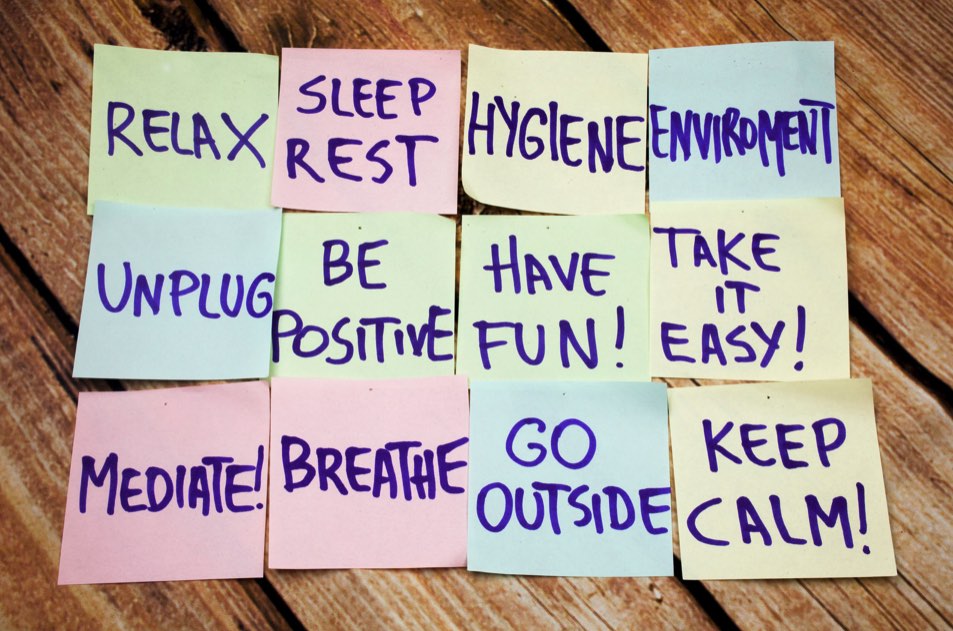 RELAX
SLEEP
REST
HYGIENE
ENVIROMENT
UNPLUG
BE
POSITIVE
HAVE
FUN!
TAKE
IT
EASY!
MEDIATE!
BREATHE
GO
OUTSIDE
KEEP
CALM!